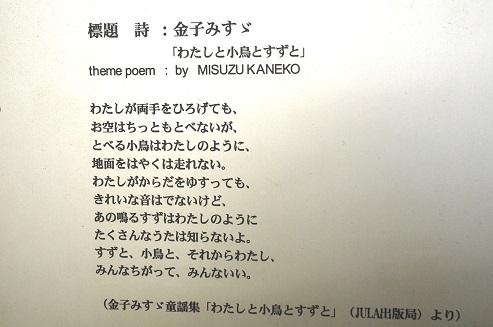 標題　詩　：金子みすゞ
「わたしと小鳥とすずと」
theme poem : by MISUZU KANEKO
わたしが両手をひろげても、
お空はちっともとべないが、
とべる小鳥はわたしのように、
地面をはやくは走れない。
わたしがからだをゆすっても、
きれいな音はでないけど、
あの鳴るすずはわたしのように
たくさんなうたは知らないよ。
すずと、小鳥と、それからわたし、
みんなちがって、みんないい。
（金子みすゞ童謡集「わたしと小鳥とすずと」（JULA出版局）より）